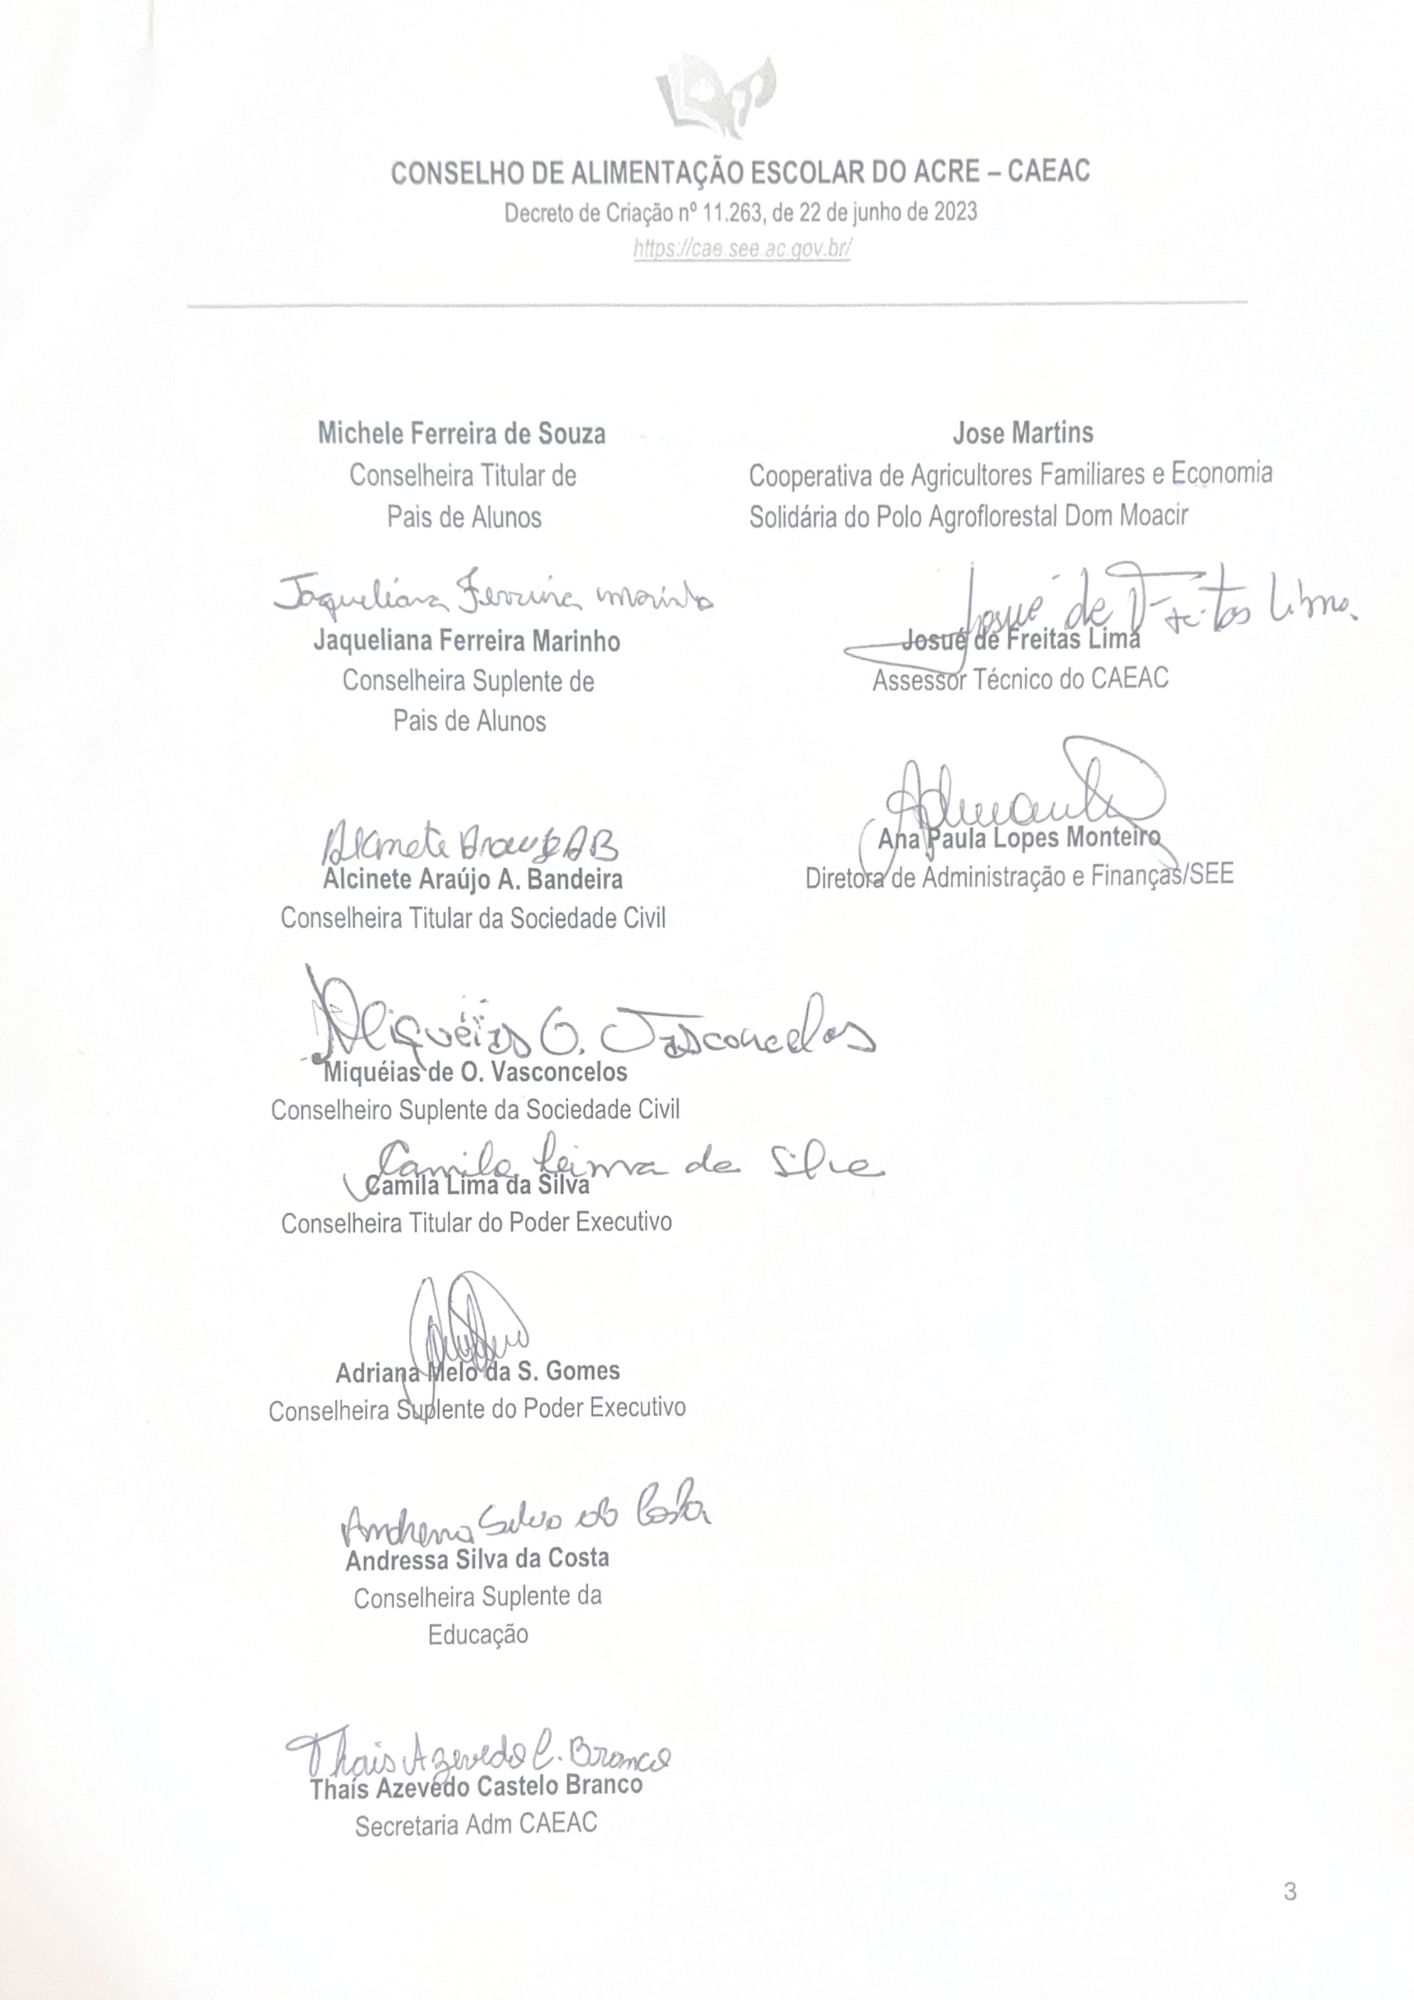 CONSELHO DE ALIMENTAÇÃO ESCOLAR DO ACRE – CAEAC
Decreto de Criação nº 11.263, de 22 de junho de 2023
https://cae.see.ac.gov.br/
Michele Ferreira de Souza
Conselheira Titular de
Pais de Alunos
Jaqueliana Ferreira Marinho
Jaqueliana Ferreira Marinho
Conselheira Suplente de
Pais de Alunos
Alcinete Araujo AB
Alcinete Araújo A. Bandeira
Conselheira Titular da Sociedade Civil
Miquéias O. Vasconcelos
Miquéias de O. Vasconcelos
Conselheiro Suplente da Sociedade Civil
Camila Leima da Silva
Camila Lima da Silva
Conselheira Titular do Poder Executivo
Adriana Melo da S. Gomes
Conselheira Suplente do Poder Executivo
Andressa Silva da Costa
Andressa Silva da Costa
Conselheira Suplente da
Educação
Thais Azevedo C. Branco
Thaís Azevedo Castelo Branco
Secretaria Adm CAEAC
Jose Martins
Cooperativa de Agricultores Familiares e Economia
Solidária do Polo Agroflorestal Dom Moacir
Josué de Freitas Lima
Josué de Freitas Lima
Assessor Técnico do CAEAC
Ana Paula Lopes Monteiro
Diretora de Administração e Finanças/SEE
3